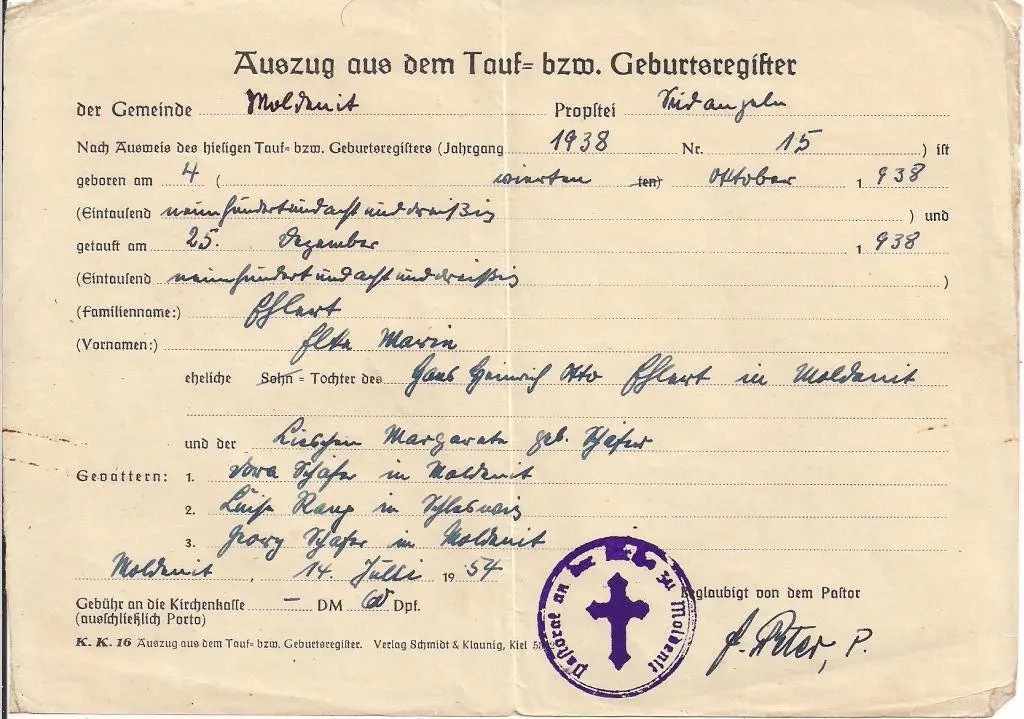 Auszug aus dem Tauf= bzw. Geburtsregister
der Gemeinde Moldenit Propstei Südangeln
Nach Ausweis des hiesigen Tauf= bzw. Geburtsregisters (Jahrgang 1938 Nr. 15 ) ist
geboren am 4 ( vierten ten) Oktober 1 938
(Eintausend neunhundertundachtunddreißig ) und
getauft am 25. Dezember 1 938
(Eintausend neunhundertundachtunddreißig )
(Familienname:) Ehlert
(Vornamen:) Elke Marie
eheliche Sohn = Tochter des Hans Heinrich Otto Ehlert in Moldenit
und der Lieschen Margarete geb. Schäfer
Gevattern: 1. Dora Schäfer in Moldenit
2. Luise Rang in Schleswig
3. Georg Schäfer in Moldenit
Moldenit , 14. Juli 19 54
Gebühr an die Kirchenkasse – DM 60 Dpf.
(ausschließlich Porto)
Beglaubigt von dem Pastor
Pastorat an der Kirche zu Moldenit
K. K. 16 Auszug aus dem Tauf= bzw. Geburtsregister. Verlag Schmidt & Klaunig, Kiel